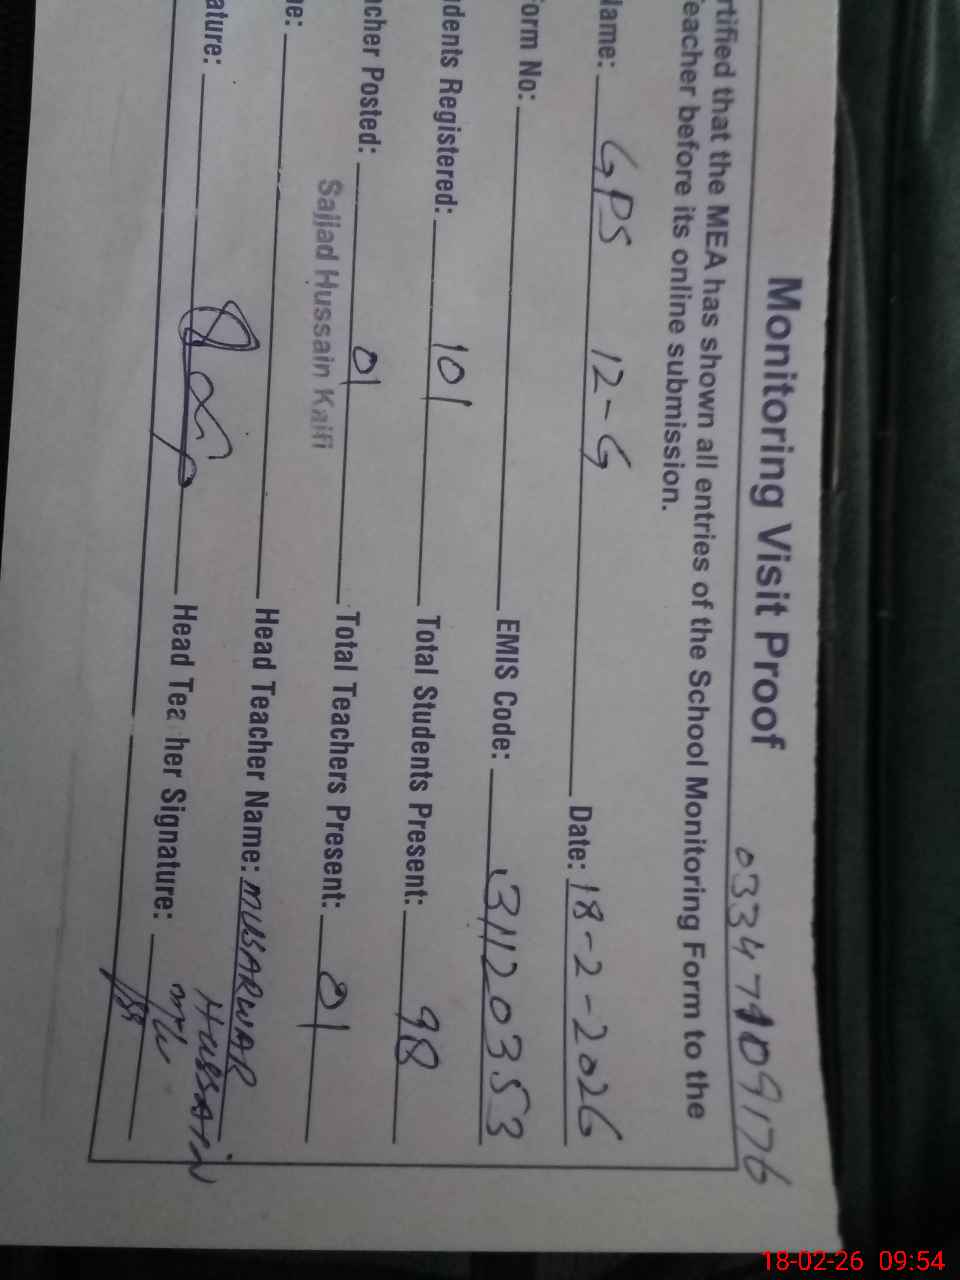 Monitoring Visit Proof
rtified that the MEA has shown all entries of the School Monitoring Form to the
eacher before its online submission.
lame: GPS 12-G Date: 18-2-2026
orm No: EMIS Code: 31120353
dents Registered: 101 Total Students Present: 98
cher Posted: 01 Total Teachers Present: 01
Sajjad Hussain Kaifi
e: Head Teacher Name: MUSARWAR
Hussain
ature: Head Tea her Signature:
18-02-26 09:54